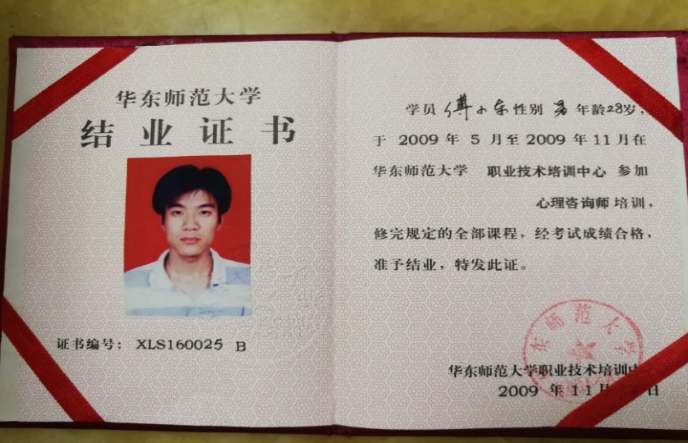 华东师范大学
结业证书
证书编号：XLS160025 B
学员 傅小东 性别 男 年龄28岁，
于 2009 年 5 月至 2009 年 11 月在
华东师范大学 职业技术培训中心 参加
心理咨询师 培训，
修完规定的全部课程，经考试成绩合格，
准予结业，特发此证。
东师范大学
华东师范大学职业技术培训
2009 年 11 日